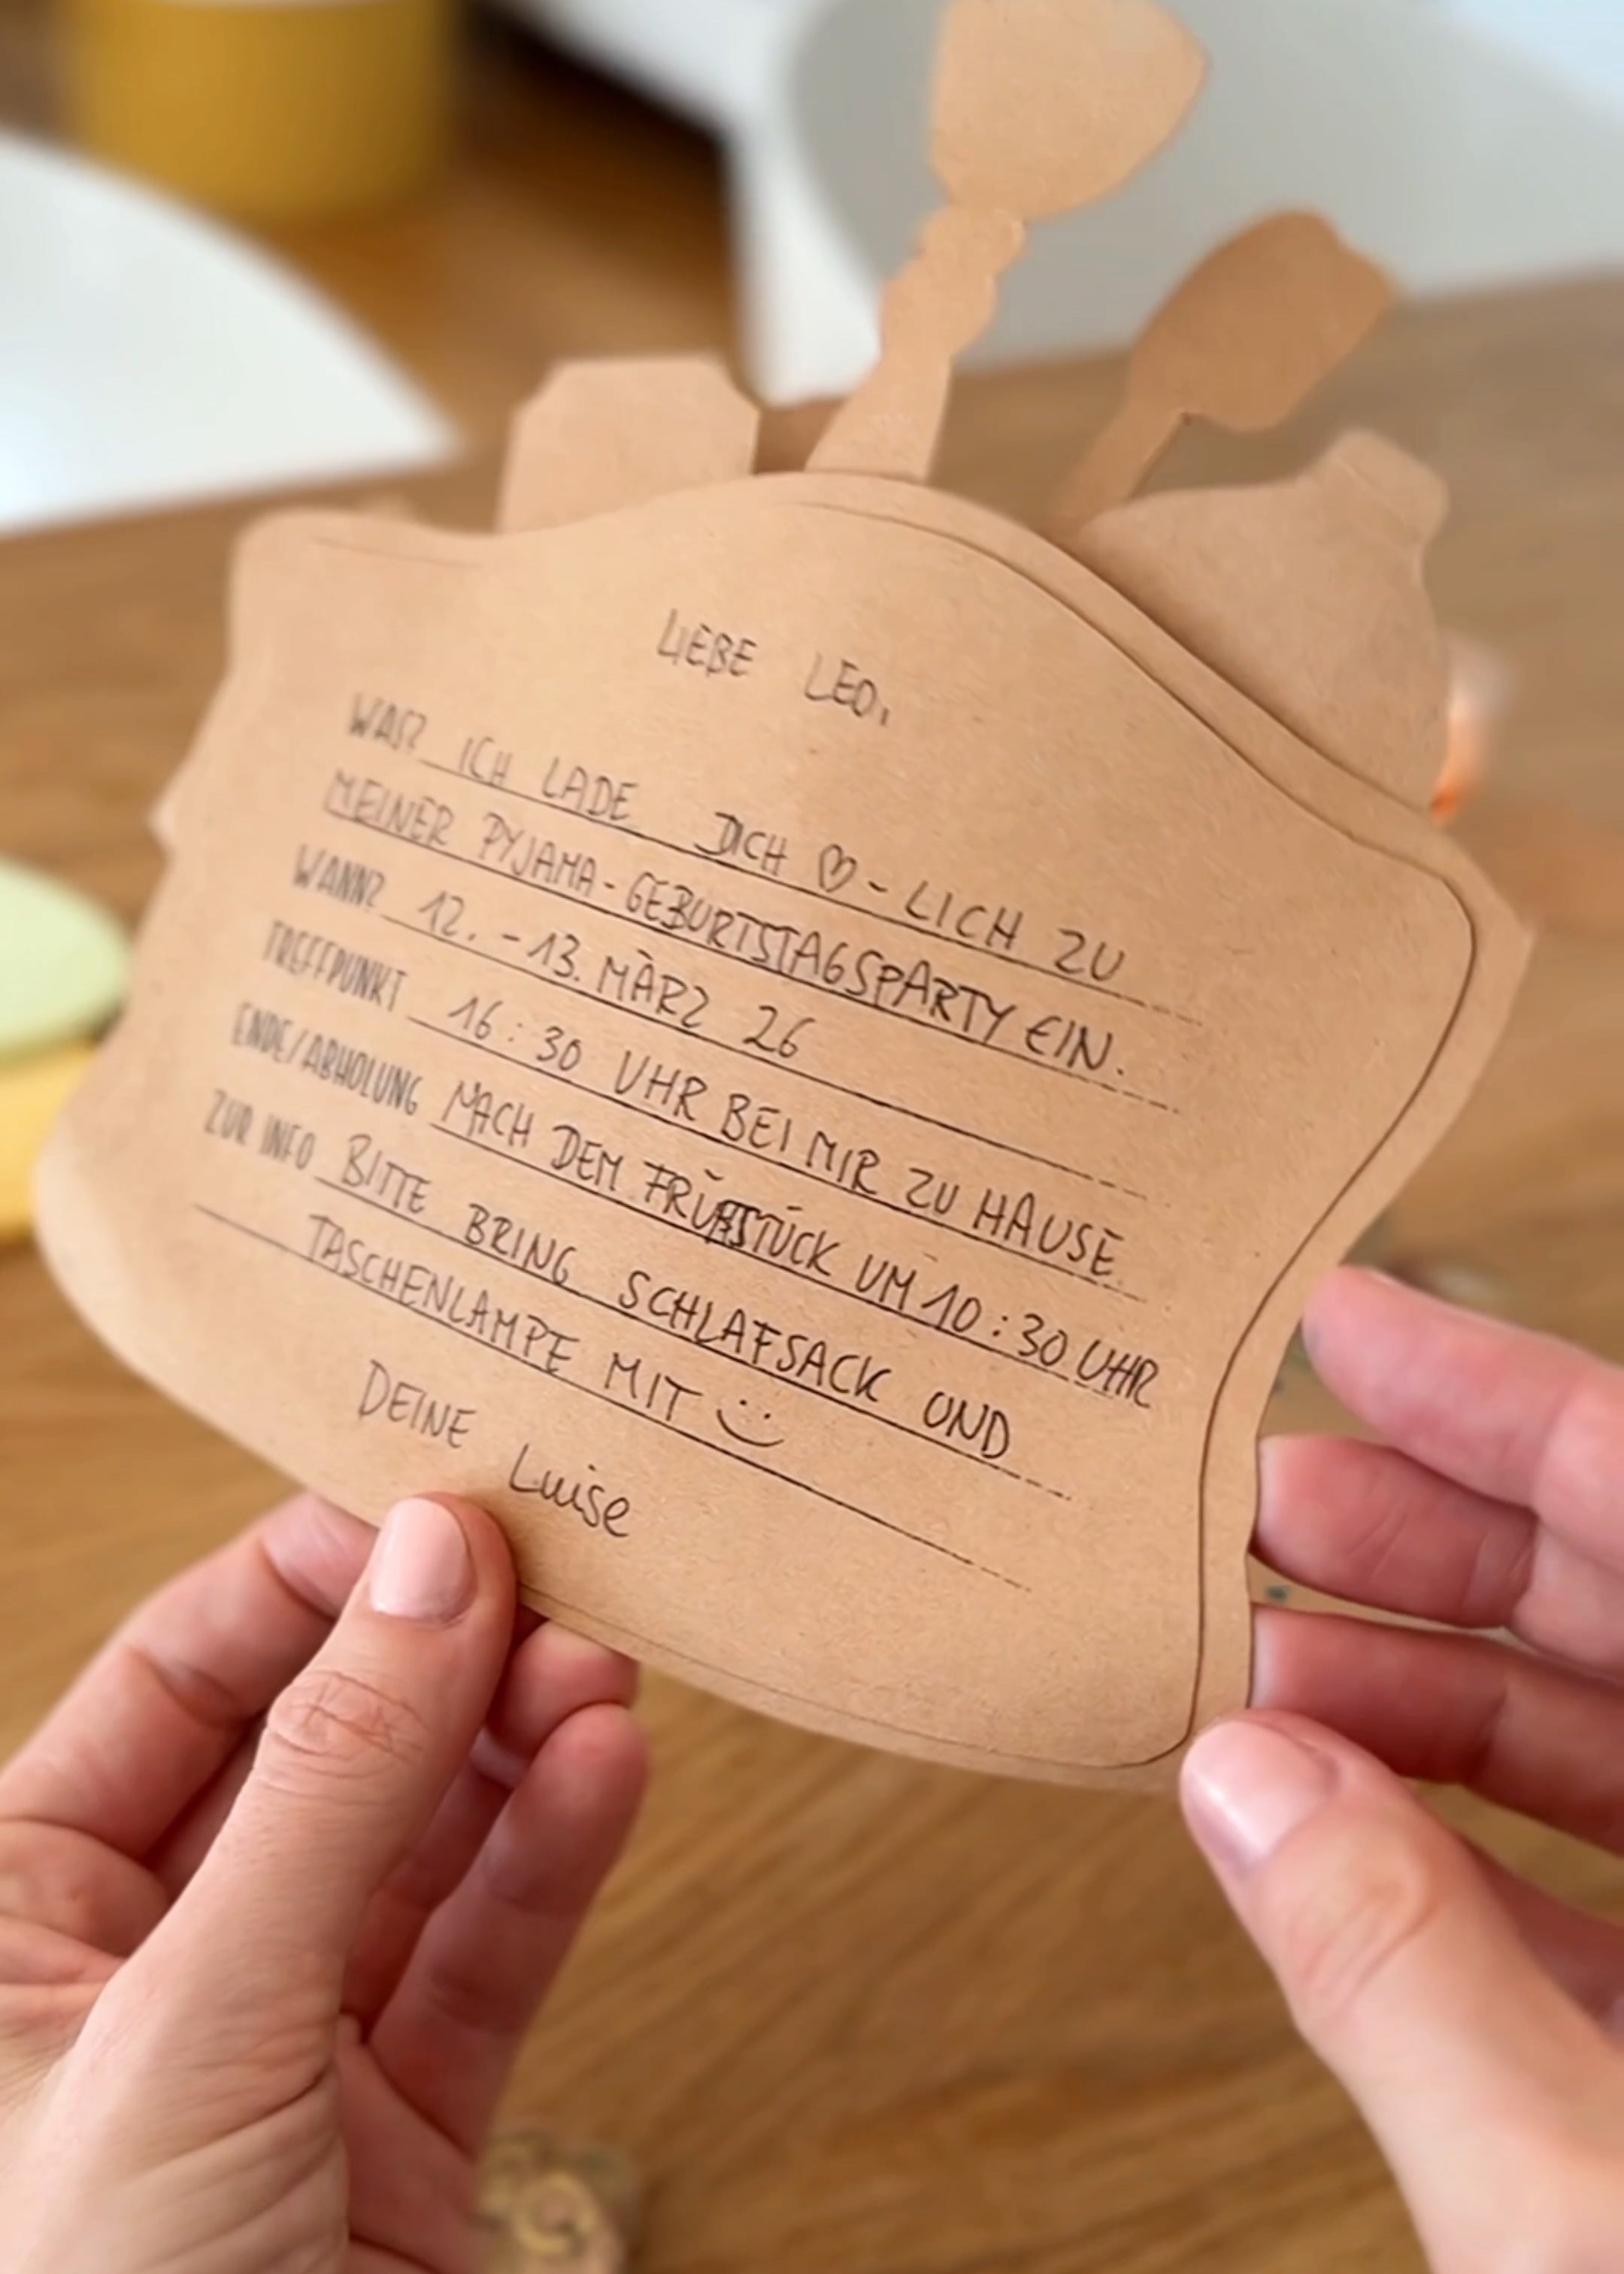 LIEBE LEO,
WAS? ICH LADE DICH ♡-LICH ZU
MEINER PYJAMA-GEBURTSTAGSPARTY EIN.
WANN? 12.-13. MÄRZ 26
TREFFPUNKT 16:30 UHR BEI MIR ZU HAUSE.
ENDE/ABHOLUNG NACH DEM FRÜHSTÜCK UM 10:30 UHR
ZUR INFO BITTE BRING SCHLAFSACK UND
TASCHENLAMPE MIT :)
DEINE Luise